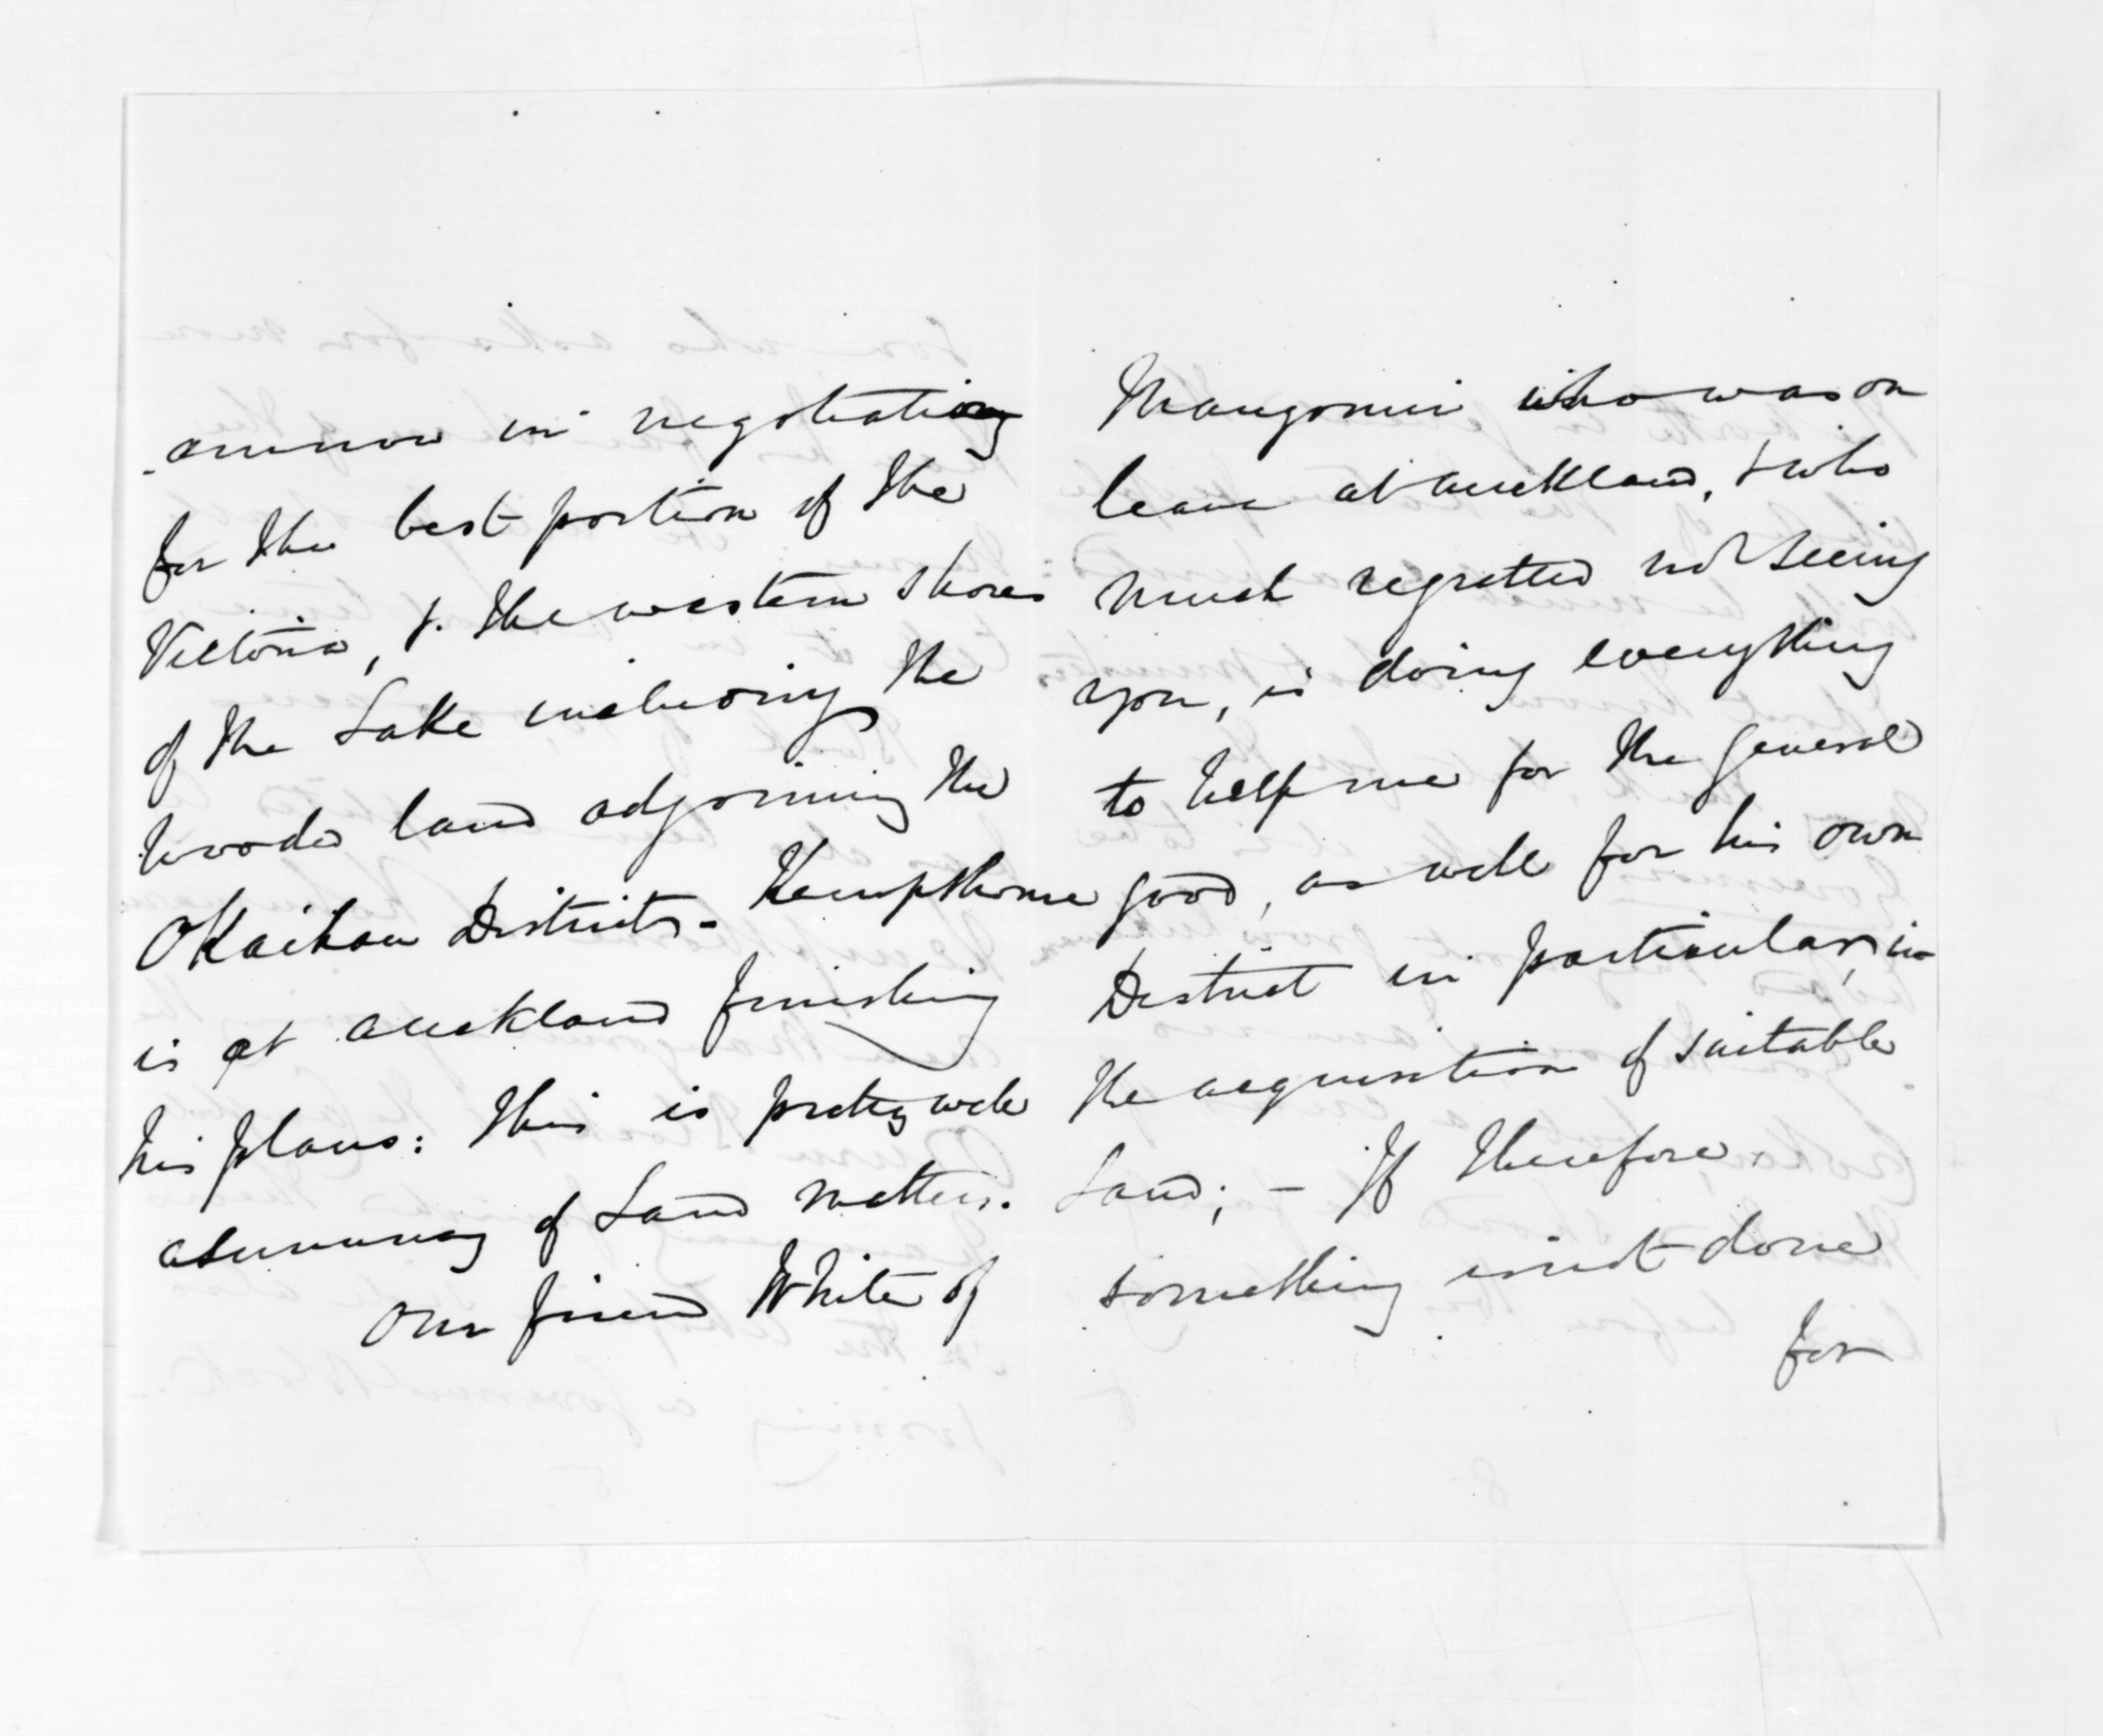 am now in negotiating
for the best portion of the
Victoria, & the western shores
of the Lake including the
wooded land adjoining the
OKaihau Districts - Kempthorne
is at Auckland finishing
his plans: This is pretty well
a summary of Land matters.
Our friend White of
Mangonui who was on
leave at Auckland, & who
much regretted not seeing
you, is doing everything
to help me for the general
good, as well for his own
District in particular, in
the acquisition of suitable
Land; - If therefore
something is not done
for